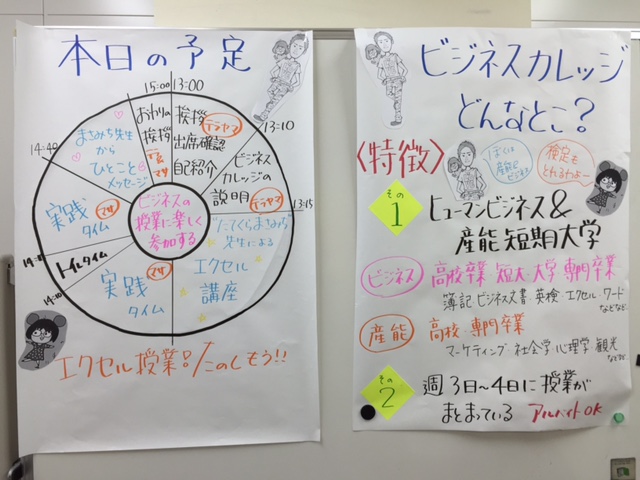 本日の予定
15:00
13:00
挨拶
テラヤマ
出席確認
自己紹介
13:10
ビジネス
カレッジの
説明
テラヤマ
13:15
たてくらまさみち
先生による
エクセル
講座
実践
マサ
タイム
14:10
トイレタイム
実践
マサ
タイム
14:40
まさみち先生
から
ひとこと
メッセージ
おわりの
挨拶
マサ
ビジネスの
授業に楽しく
参加する
エクセル授業、たのしもう!!
ビジネスカレッジ
どんなとこ?
〈特徴〉
ぼくは
産能と
ビジネス
検定も
とれるわよ〜
その
1
ヒューマンビジネス&
産能短期大学
ビジネス
高校卒業 短大・大学 専門卒業
簿記 ビジネス文書 英検 エクセル・ワード
などなど
産能
高校・専門卒業
マーケティング 社会学 心理学 観光
などなど
その
2
週3日〜4日に授業が
まとまっている
アルバイトOK